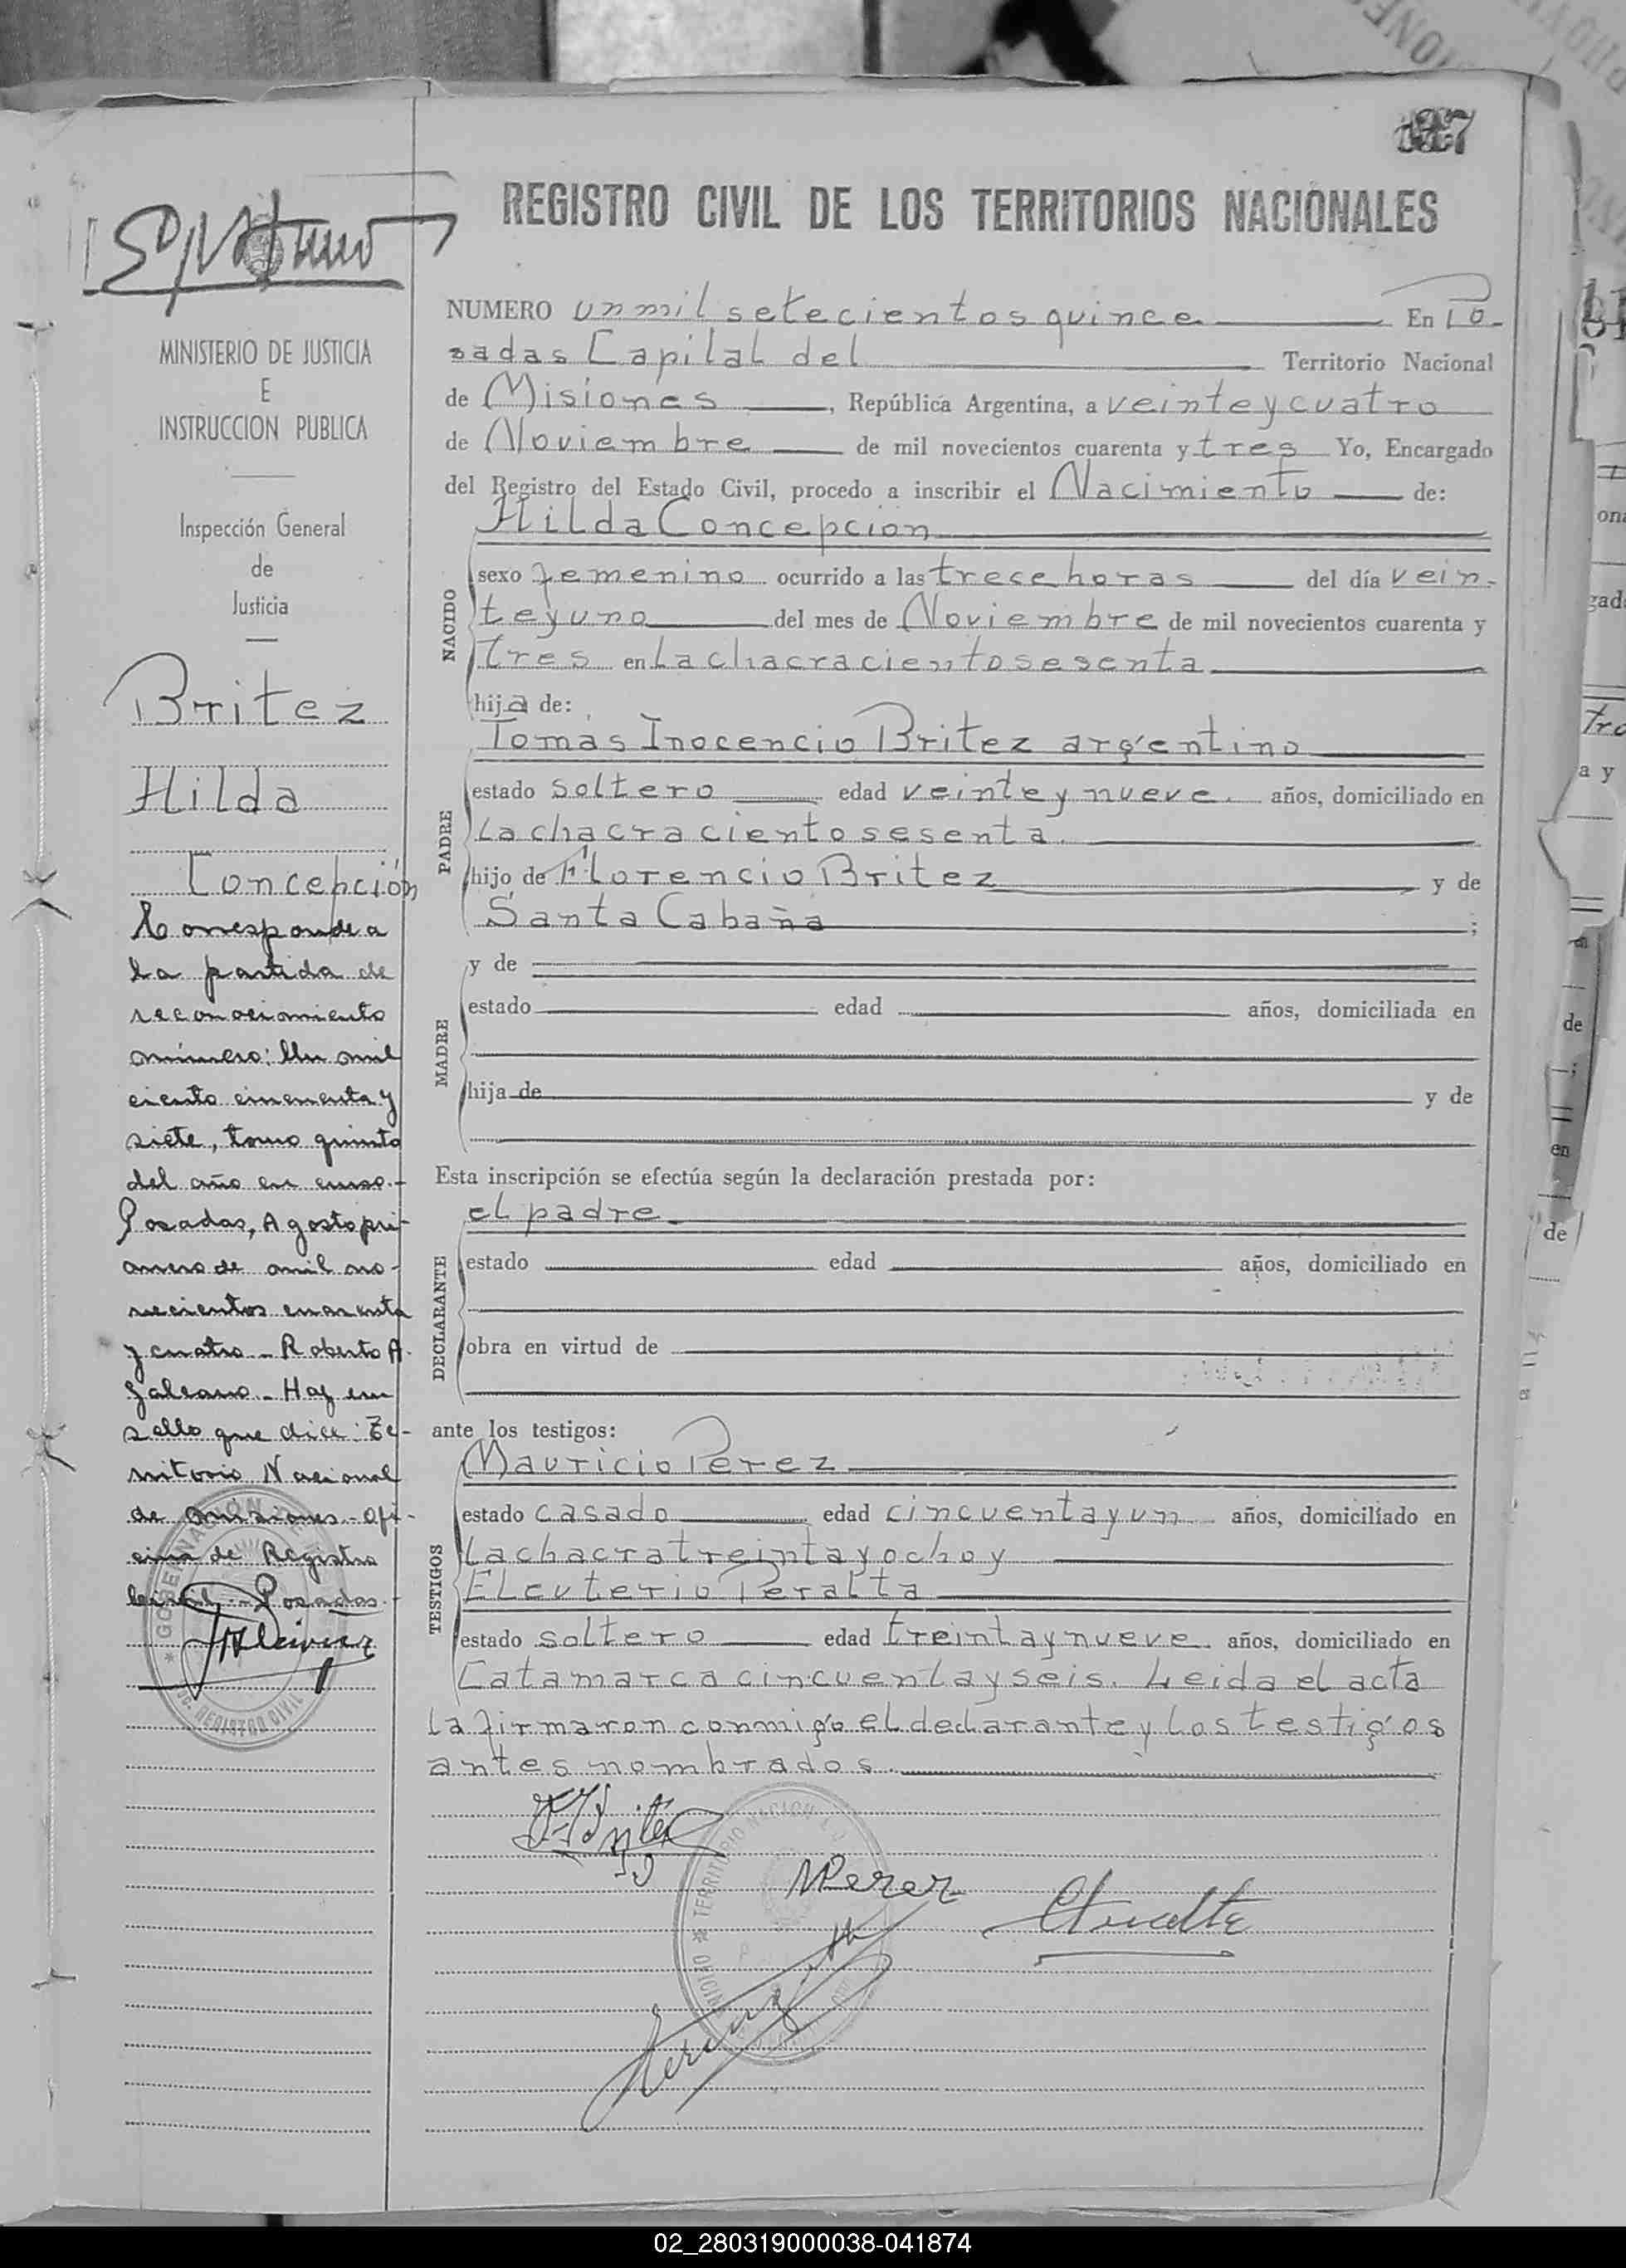 REGISTRO CIVIL DE LOS TERRITORIOS NACIONALES
MINISTERIO DE JUSTICIA
E
INSTRUCCION PUBLICA
Inspección General
de
Justicia
Britez
Hilda
Concepción
Corresponde a
la partida de
reconocimiento
número: Un mil
ciento cincuenta y
siete, tomo quinto
del año en curso.-
Posadas, Agosto pri-
mero de mil no-
vecientos cuarenta
y cuatro - Roberto A.
Galeano - Hay un
sello que dice: Te-
rritorio Nacional
de Misiones - Ofi-
cina de Registro
Civil - Posadas -
GOBERNACION DE
REGISTRO CIVIL
NUMERO un mil setecientos quince En Po-
sadas Capital del Territorio Nacional
de Misiones, República Argentina, a veinte y cuatro
de Noviembre de mil novecientos cuarenta y tres Yo, Encargado
del Registro del Estado Civil, procedo a inscribir el Nacimiento de:
Hilda Concepcion
NACIDO
sexo femenino ocurrido a las trece horas del día vein-
te y uno del mes de Noviembre de mil novecientos cuarenta y
tres en la chacra ciento sesenta
hija de:
Tomás Inocencio Britez argentino
PADRE
estado soltero edad veinte y nueve. años, domiciliado en
la chacra ciento sesenta.
hijo de Florencio Britez y de
Santa Cabaña ;
MADRE
y de
estado edad años, domiciliada en
hija de y de
Esta inscripción se efectúa según la declaración prestada por:
el padre.
DECLARANTE
estado edad años, domiciliado en
obra en virtud de
ante los testigos:
TESTIGOS
Mauricio Perez
estado casado edad cincuenta y un años, domiciliado en
la chacra treinta y ocho y
Eleuterio Peralta
estado soltero edad treinta y nueve. años, domiciliado en
Catamarca cincuenta y seis. Leida el acta
la firmaron conmigo el declarante y los testigos
antes nombrados.
MPerez
TERRITORIO NACIONAL
02_280319000038-041874